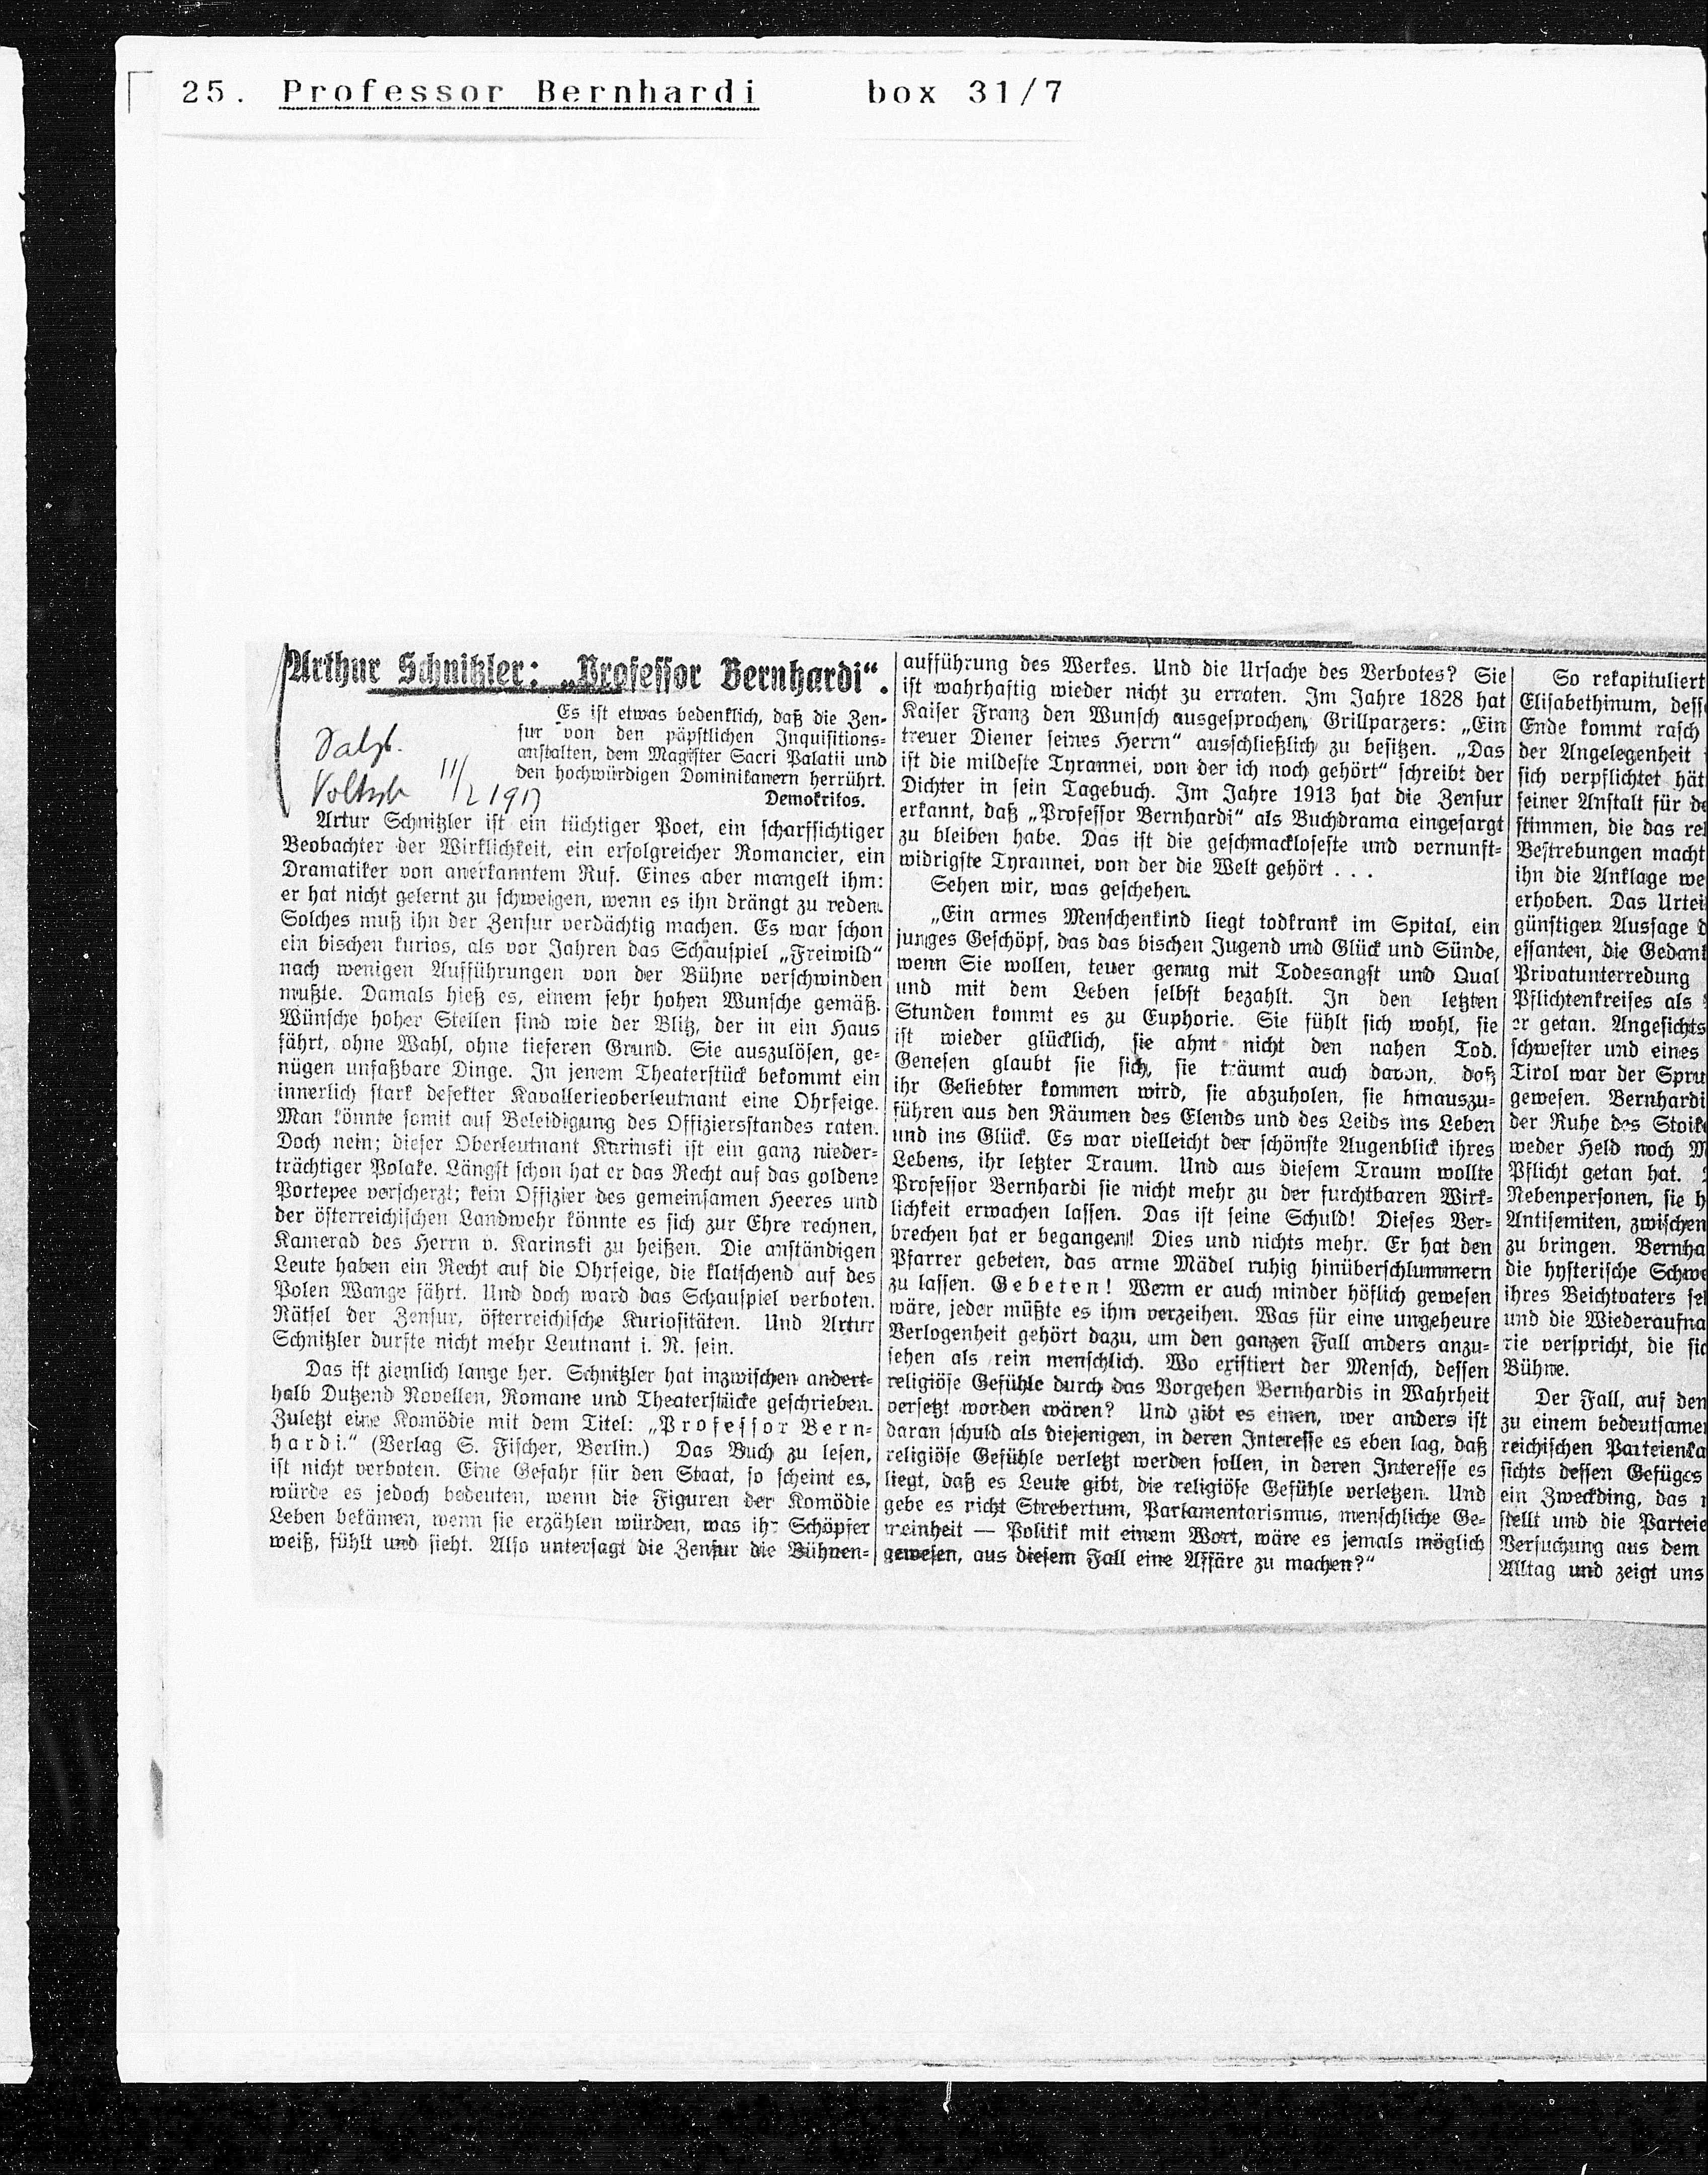 25. Professor Bernhardi box 31/7
Arthur Schnitzler: „Professor Bernhardi“.
Salzb.
Volksbl 11/2 1913
Es ist etwas bedenklich, daß die Zen-
sur von den päpstlichen Inquisitions-
anstalten, dem Magister Sacri Palatii und
den hochwürdigen Dominikanern herrührt.
Demokritos.
Artur Schnitzler ist ein tüchtiger Poet, ein scharfsichtiger
Beobachter der Wirklichkeit, ein erfolgreicher Romancier, ein
Dramatiker von anerkanntem Ruf. Eines aber mangelt ihm:
er hat nicht gelernt zu schweigen, wenn es ihn drängt zu reden.
Solches muß ihn der Zensur verdächtig machen. Es war schon
ein bischen kurios, als vor Jahren das Schauspiel „Freiwild“
nach wenigen Aufführungen von der Bühne verschwinden
mußte. Damals hieß es, einem sehr hohen Wunsche gemäß.
Wünsche hoher Stellen sind wie der Blitz, der in ein Haus
fährt, ohne Wahl, ohne tieferen Grund. Sie auszulösen, ge-
nügen unfaßbare Dinge. In jenem Theaterstück bekommt ein
innerlich stark defekter Kavallerieoberleutnant eine Ohrfeige.
Man könnte somit auf Beleidigung des Offiziersstandes raten.
Doch nein; dieser Oberleutnant Karinski ist ein ganz nieder-
trächtiger Polake. Längst schon hat er das Recht auf das goldene
Portepee verscherzt; kein Offizier des gemeinsamen Heeres und
der österreichischen Landwehr könnte es sich zur Ehre rechnen,
Kamerad des Herrn v. Karinski zu heißen. Die anständigen
Leute haben ein Recht auf die Ohrfeige, die klatschend auf des
Polen Wange fährt. Und doch ward das Schauspiel verboten.
Rätsel der Zensur, österreichische Kuriositäten. Und Artur
Schnitzler durfte nicht mehr Leutnant i. R. sein.
Das ist ziemlich lange her. Schnitzler hat inzwischen andert-
halb Dutzend Novellen, Romane und Theaterstücke geschrieben.
Zuletzt eine Komödie mit dem Titel: „Professor Bern-
hardi.“ (Verlag S. Fischer, Berlin.) Das Buch zu lesen,
ist nicht verboten. Eine Gefahr für den Staat, so scheint es,
würde es jedoch bedeuten, wenn die Figuren der Komödie
Leben bekämen, wenn sie erzählen würden, was ihr Schöpfer
weiß, fühlt und sieht. Also untersagt die Zensur die Bühnen-
aufführung des Werkes. Und die Ursache des Verbotes? Sie
ist wahrhaftig wieder nicht zu erraten. Im Jahre 1828 hat
Kaiser Franz den Wunsch ausgesprochen, Grillparzers: „Ein
treuer Diener seines Herrn“ ausschließlich zu besitzen. „Das
ist die mildeste Tyrannei, von der ich noch gehört“ schreibt der
Dichter in sein Tagebuch. Im Jahre 1913 hat die Zensur
erkannt, daß „Professor Bernhardi“ als Buchdrama eingesargt
zu bleiben habe. Das ist die geschmackloseste und vernunft-
widrigste Tyrannei, von der die Welt gehört . . .
Sehen wir, was geschehen.
„Ein armes Menschenkind liegt todkrank im Spital, ein
junges Geschöpf, das das bischen Jugend und Glück und Sünde,
wenn Sie wollen, teuer genug mit Todesangst und Qual
und mit dem Leben selbst bezahlt. In den letzten
Stunden kommt es zu Euphorie. Sie fühlt sich wohl, sie
ist wieder glücklich, sie ahnt nicht den nahen Tod.
Genesen glaubt sie sich, sie träumt auch davon, daß
ihr Geliebter kommen wird, sie abzuholen, sie hinauszu-
führen aus den Räumen des Elends und des Leids ins Leben
und ins Glück. Es war vielleicht der schönste Augenblick ihres
Lebens, ihr letzter Traum. Und aus diesem Traum wollte
Professor Bernhardi sie nicht mehr zu der furchtbaren Wirk-
lichkeit erwachen lassen. Das ist seine Schuld! Dieses Ver-
brechen hat er begangen! Dies und nichts mehr. Er hat den
Pfarrer gebeten, das arme Mädel ruhig hinüberschlummern
zu lassen. Gebeten! Wenn er auch minder höflich gewesen
wäre, jeder müßte es ihm verzeihen. Was für eine ungeheure
Verlogenheit gehört dazu, um den ganzen Fall anders anzu-
sehen als rein menschlich. Wo existiert der Mensch, dessen
religiöse Gefühle durch das Vorgehen Bernhardis in Wahrheit
versetzt worden wären? Und gibt es einen, wer anders ist
daran schuld als diejenigen, in deren Interesse es eben lag, daß
religiöse Gefühle verletzt werden sollen, in deren Interesse es
liegt, daß es Leute gibt, die religiöse Gefühle verletzen. Und
gebe es nicht Strebertum, Parlamentarismus, menschliche Ge-
meinheit — Politik mit einem Wort, wäre es jemals möglich
gewesen, aus diesem Fall eine Affäre zu machen?“
So rekapituliert
Elisabethinum, dess
Ende kommt rasch
der Angelegenheit
sich verpflichtet hät
seiner Anstalt für de
stimmen, die das re
Bestrebungen macht
ihn die Anklage we
erhoben. Das Urtei
günstigen Aussage d
essanten, die Gedank
Privatunterredung
Pflichtenkreises als
er getan. Angesichts
schwester und eines
Tirol war der Spru
gewesen. Bernhardi
der Ruhe des Stoik
weder Held noch M
Pflicht getan hat.
Nebenpersonen, sie h
Antisemiten, zwischen
zu bringen. Bernha
die hysterische Schwe
ihres Beichtvaters se
und die Wiederaufna
rie verspricht, die sic
Bühne.
Der Fall, auf den
zu einem bedeutsamen
reichischen Parteienka
sichts dessen Gefüges
ein Zweckding, das
stellt und die Parteie
Versuchung aus dem
Alltag und zeigt uns